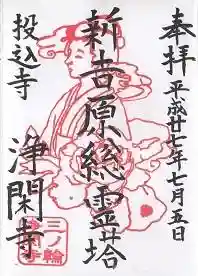 奉拝
平成廿七年七月五日
新吉原総霊塔
投込寺
浄閑寺
三ノ輪